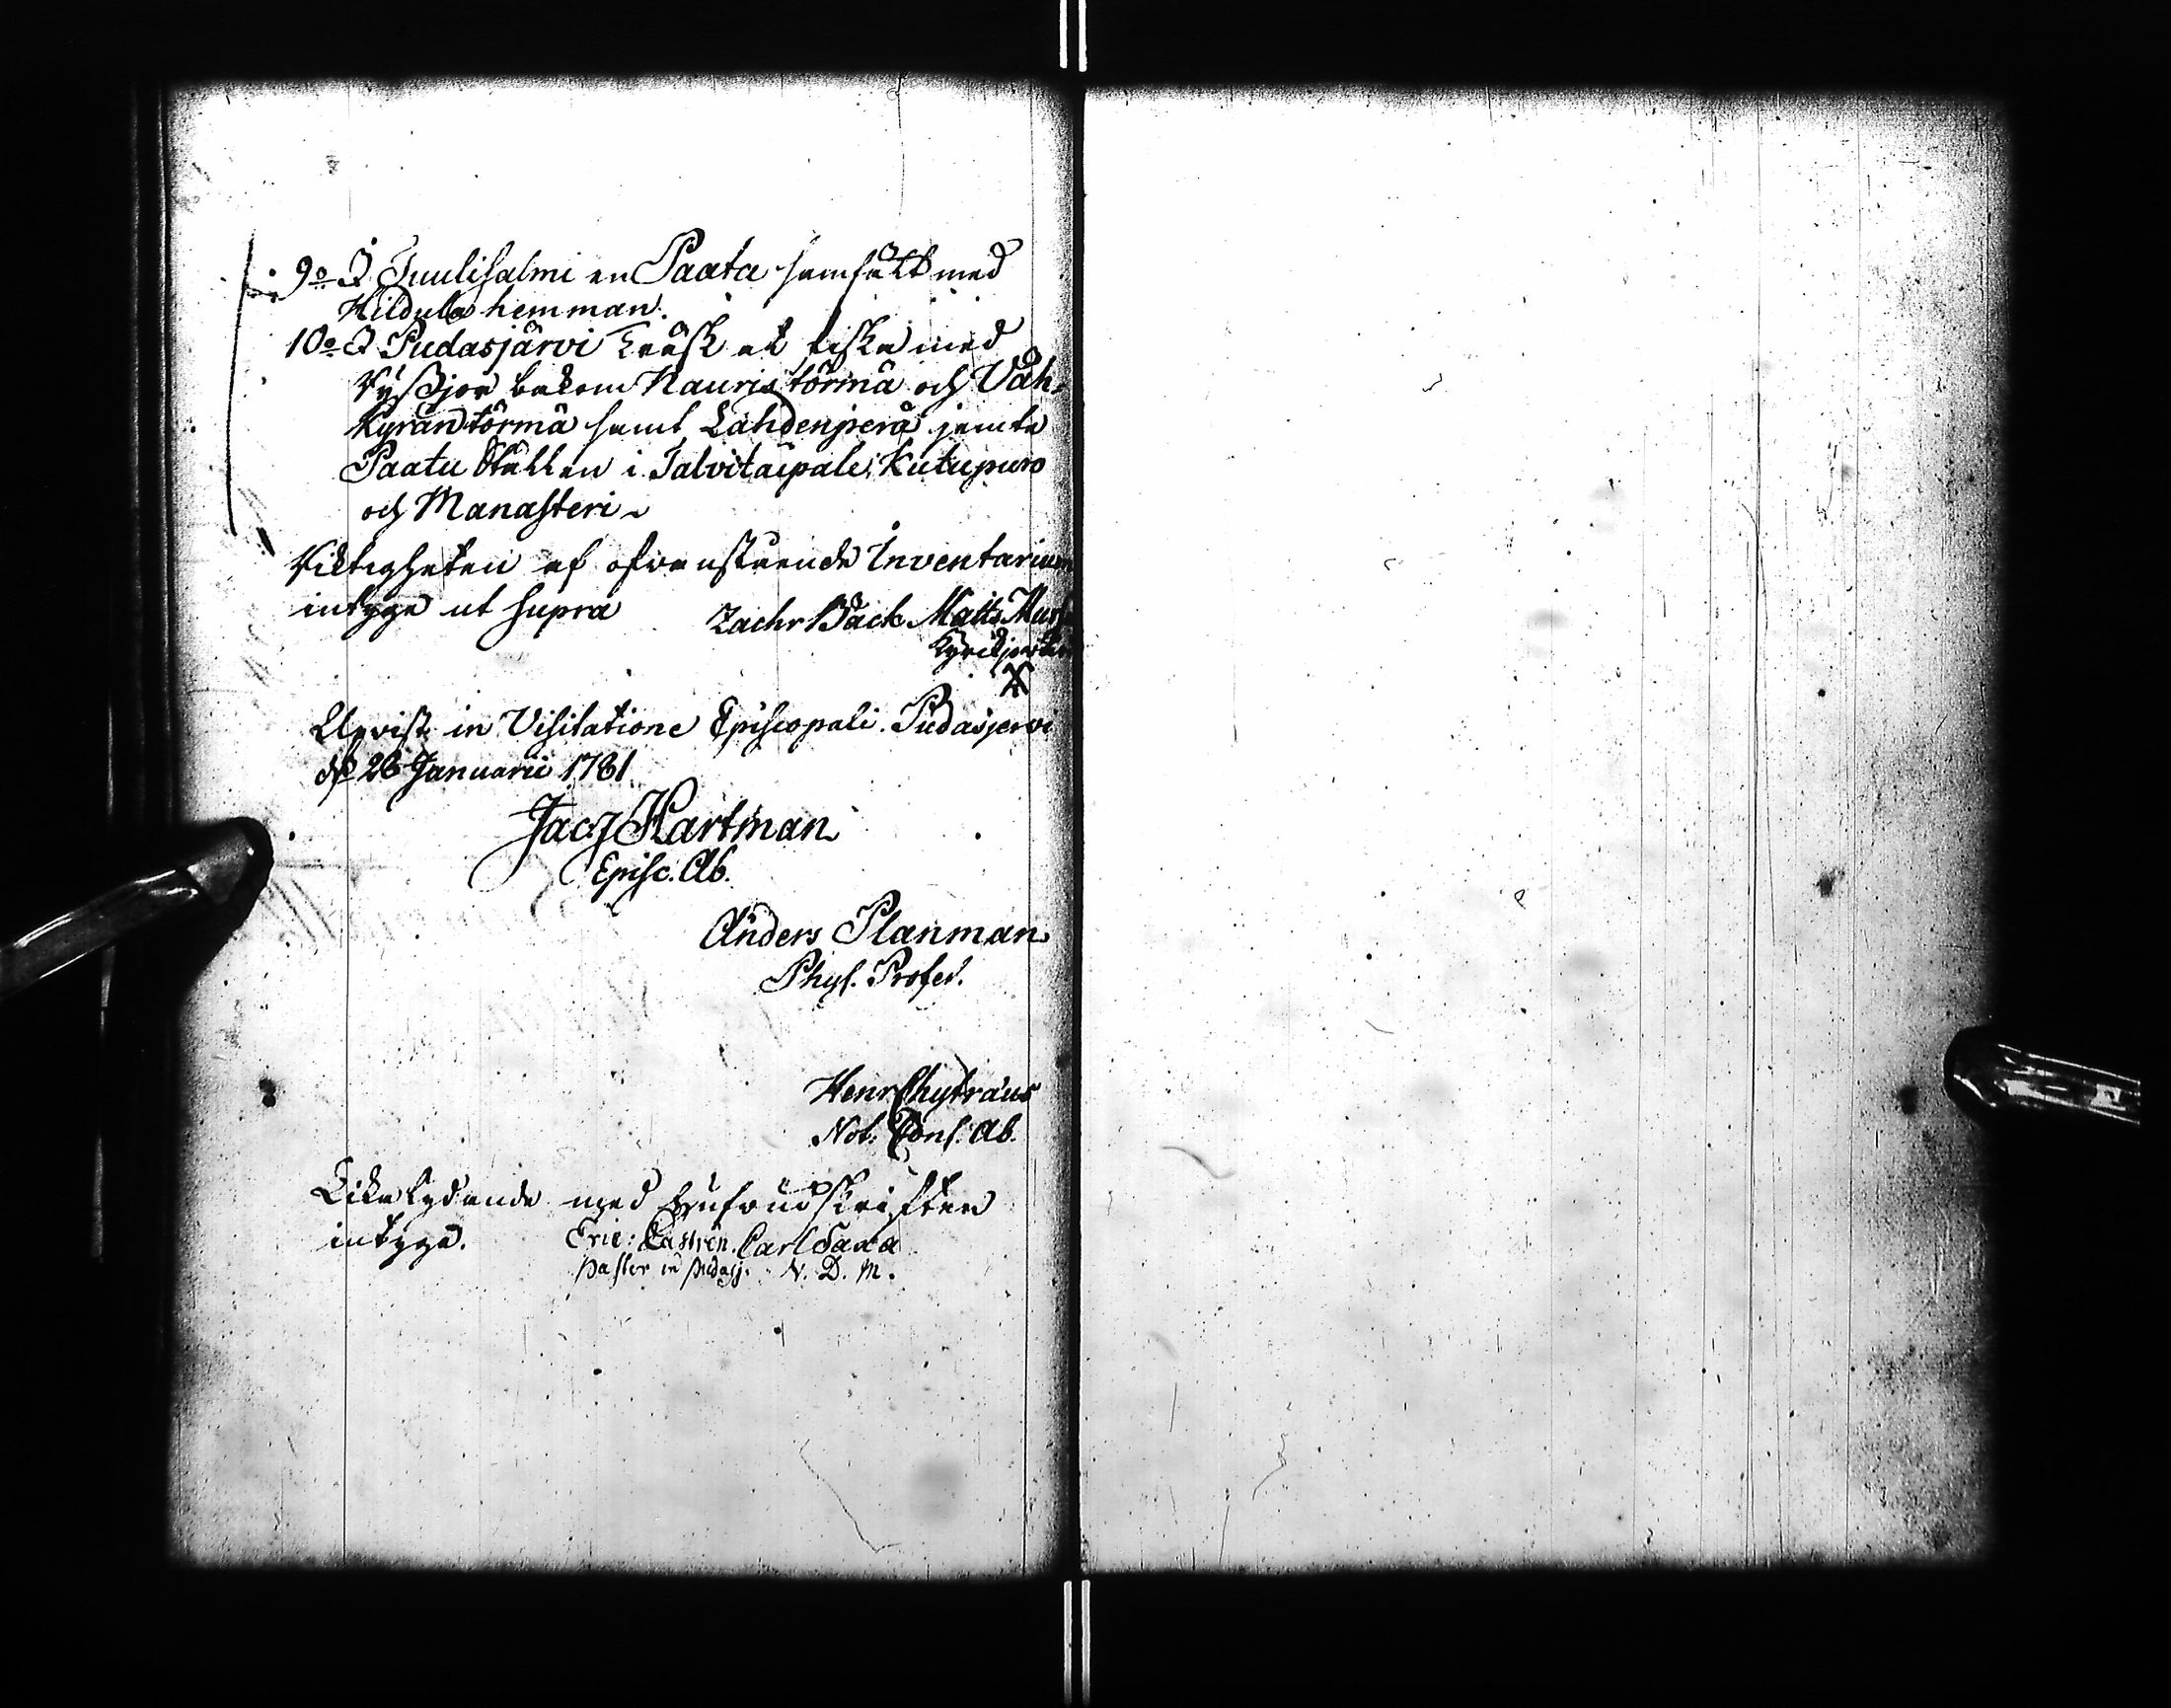 9:o I Tuulisalmi en Paata samfält med
Hildula hemman.
10:o I Pudasjärvi Träsk at fiska med
Ryssjor bakom Nauristörmä och Väh-
kyrän törmä samt Lahdenperä jemte
Paatu Ställen i Talvitaipale, Kutupuro
och Manasteri
Riktigheten af ofvanstående Inventarium
intyga ut supra Zachr Back Matts
Kyrckjowärd
X
Upvist in Visitatione Episcopali Pudasjervi
d. 28 Januarii 1781
Jac: Hartman
Episc. Ab.
Anders Planman
Phys. Profes.
Henr Chytræus
Not: Cons. Ab.
Lika lydande med hufvudskriften
intyga. Eric: Castrén. Carl Saxa
Pastor in Pudasj. V. D. M.